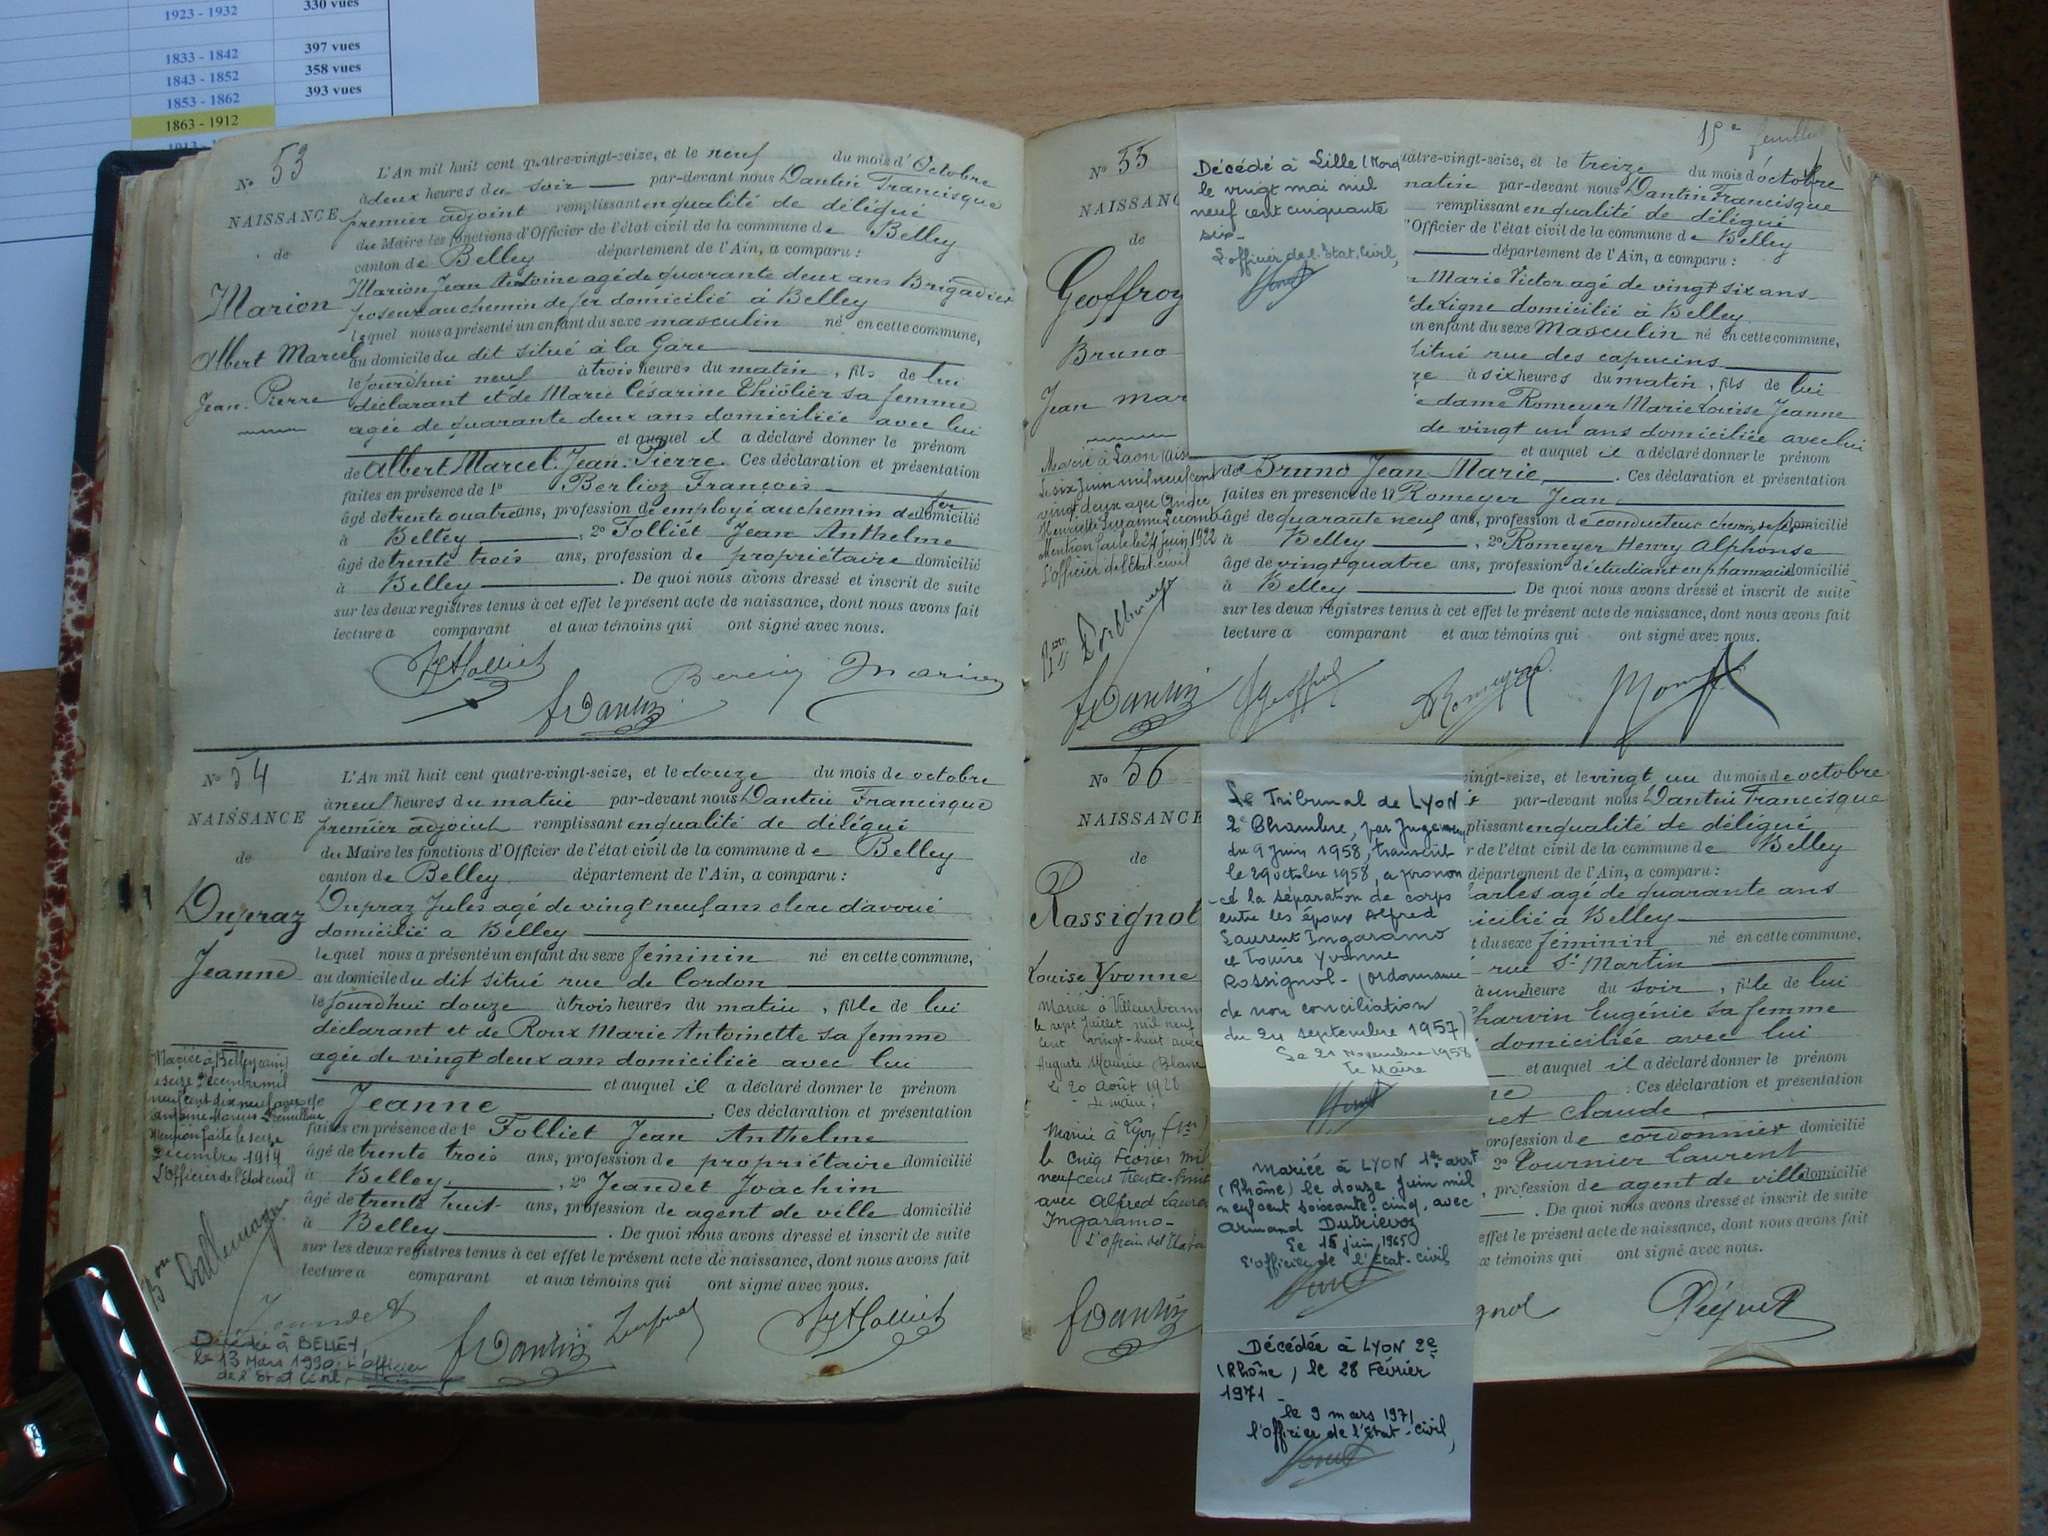 1923 - 1932 330 vues
1833 - 1842 397 vues
1843 - 1852 358 vues
1853 - 1862 393 vues
1863 - 1912
N° 53
NAISSANCE
de
Marion
Albert Marcel
Jean Pierre
L'An mil huit cent quatre-vingt-seize, et le neuf du mois d'Octobre
à deux heures du soir par-devant nous Dantin Francisque
premier adjoint remplissant en qualité de délégué
du Maire les fonctions d'Officier de l'état civil de la commune de Belley
canton de Belley département de l'Ain, a comparu :
Marion Jean Antoine agé de quarante deux ans Brigadier
poseur au chemin de fer domicilié à Belley
lequel nous a présenté un enfant du sexe masculin né en cette commune,
au domicile du dit situé à la Gare
le jourdhui neuf à trois heures du matin, fils de lui
déclarant et de Marie Césarine Thiolier sa femme
agée de quarante deux ans domiciliée avec lui
et auquel il a déclaré donner le prénom
de Albert Marcel Jean Pierre. Ces déclaration et présentation
faites en présence de 1° Berlioz François
âgé de trente quatre ans, profession de employé au chemin de fer domicilié
à Belley, 2° Folliet Jean Anthelme
âgé de trente trois ans, profession de propriétaire domicilié
à Belley. De quoi nous avons dressé et inscrit de suite
sur les deux registres tenus à cet effet le présent acte de naissance, dont nous avons fait
lecture a comparant et aux témoins qui ont signé avec nous.
JAFolliet
FDantin Marion
N° 54
NAISSANCE
de
Dupraz
Jeanne
L'An mil huit cent quatre-vingt-seize, et le douze du mois de octobre
à neuf heures du matin par-devant nous Dantin Francisque
premier adjoint remplissant en qualité de délégué
du Maire les fonctions d'Officier de l'état civil de la commune de Belley
canton de Belley département de l'Ain, a comparu :
Dupraz Jules agé de vingt neuf ans clerc d'avoué
domicilié a Belley
lequel nous a présenté un enfant du sexe féminin né en cette commune,
au domicile du dit situé rue de Cordon
le jourdhui douze à trois heures du matin, fille de lui
déclarant et de Roux Marie Antoinette sa femme
agée de vingt deux ans domiciliée avec lui
et auquel il a déclaré donner le prénom
Jeanne. Ces déclaration et présentation
faites en présence de 1° Folliet Jean Anthelme
âgé de trente trois ans, profession de propriétaire domicilié
à Belley, 2° Jeandet Joachim
âgé de trente huit ans, profession de agent de ville domicilié
à Belley. De quoi nous avons dressé et inscrit de suite
sur les deux registres tenus à cet effet le présent acte de naissance, dont nous avons fait
lecture a comparant et aux témoins qui ont signé avec nous.
Mariée à Belley (ain)
le seize Décembre mil
neuf cent dix neuf avec
Antoine Marius
Mention faite le seize
Décembre 1919
L'Officier de l'Etat civil
Jeandet FDantin JAFolliet
Décédée à BELLEY,
le 13 Mars 1990. L'officier
de l'Etat Civil,
15e feuillet
N° 55
NAISSANC
de
Geoffroy
Bruno
Jean Mar
Décédé à Lille (Nord
le vingt mai mil
neuf cent cinquante
six-
L'officier de l'Etat-Civil,
uatre-vingt-seize, et le treize du mois d'octobre
matin par-devant nous Dantin Francisque
remplissant en qualité de délégué
'Officier de l'état civil de la commune de Belley
département de l'Ain, a comparu :
Marie Victor agé de vingt six ans
de Ligne domicilié à Belley
un enfant du sexe Masculin né en cette commune,
situé rue des capucins
à six heures du matin, fils de lui
dame Romeyer Marie Louise Jeanne
de vingt un ans domiciliée avec lui
et auquel il a déclaré donner le prénom
de Bruno Jean Marie. Ces déclaration et présentation
faites en présence de 1° Romeyer Jean
âgé de quarante neuf ans, profession de conducteur chemin de fer domicilié
à Belley, 2° Romeyer Henry Alphonse
âgé de vingt quatre ans, profession d'étudiant en pharmacie domicilié
à Belley. De quoi nous avons dressé et inscrit de suite
sur les deux registres tenus à cet effet le présent acte de naissance, dont nous avons fait
lecture a comparant et aux témoins qui ont signé avec nous.
Marié à Laon
le six Juin mil neuf cent
vingt deux avec
Henriette Suzanne
Mention faite le 24 juin 1922
L'officier de l'Etat civil
FDantin
N° 56
NAISSANCE
de
Rossignol
Louise Yvonne
Mariée à Villeurbanne
le sept Juillet mil neuf
cent vingt-huit avec
Auguste Maurice Blanc
le 20 Août 1928
Le maire,
Mariée à Lyon (1er)
le cinq Février mil
neuf cent trente-huit
avec Alfred Laurent
Ingaramo-
L'officier de l'Etat
Le Tribunal de LYON
2e Chambre, par Jugement
du 9 Juin 1958, transcrit
le 29 octobre 1958, a pronon
-cé la séparation de corps
entre les époux Alfred
Laurent Ingaramo
et Louise Yvonne
Rossignol- (ordonnance
de non conciliation
du 24 septembre 1957)
Le 21 Novembre 1958
Le Maire
Mariée à LYON 1er arrt
(Rhône) le douze Juin mil
neuf cent soixante-cinq, avec
Armand Dutrievoz
Le 15 juin 1965
L'officier de l'Etat-civil
Décédée à LYON 2e
(Rhône), le 28 Février
1971-
le 9 mars 1971
l'officier de l'Etat-civil,
vingt-seize, et le vingt un du mois de octobre
par-devant nous Dantin Francisque
plissant en qualité de délégué
r de l'état civil de la commune de Belley
département de l'Ain, a comparu :
harles agé de quarante ans
icilié à Belley
t du sexe féminin né en cette commune,
rue St Martin
à une heure du soir, fille de lui
Charvin Eugénie sa femme
domiciliée avec lui
et auquel il a déclaré donner le prénom
Ces déclaration et présentation
uet Claude
profession de cordonnier domicilié
2° Tournier Laurent
, profession de agent de ville domicilié
. De quoi nous avons dressé et inscrit de suite
effet le présent acte de naissance, dont nous avons fait
x témoins qui ont signé avec nous.
FDantin gnol Péquet